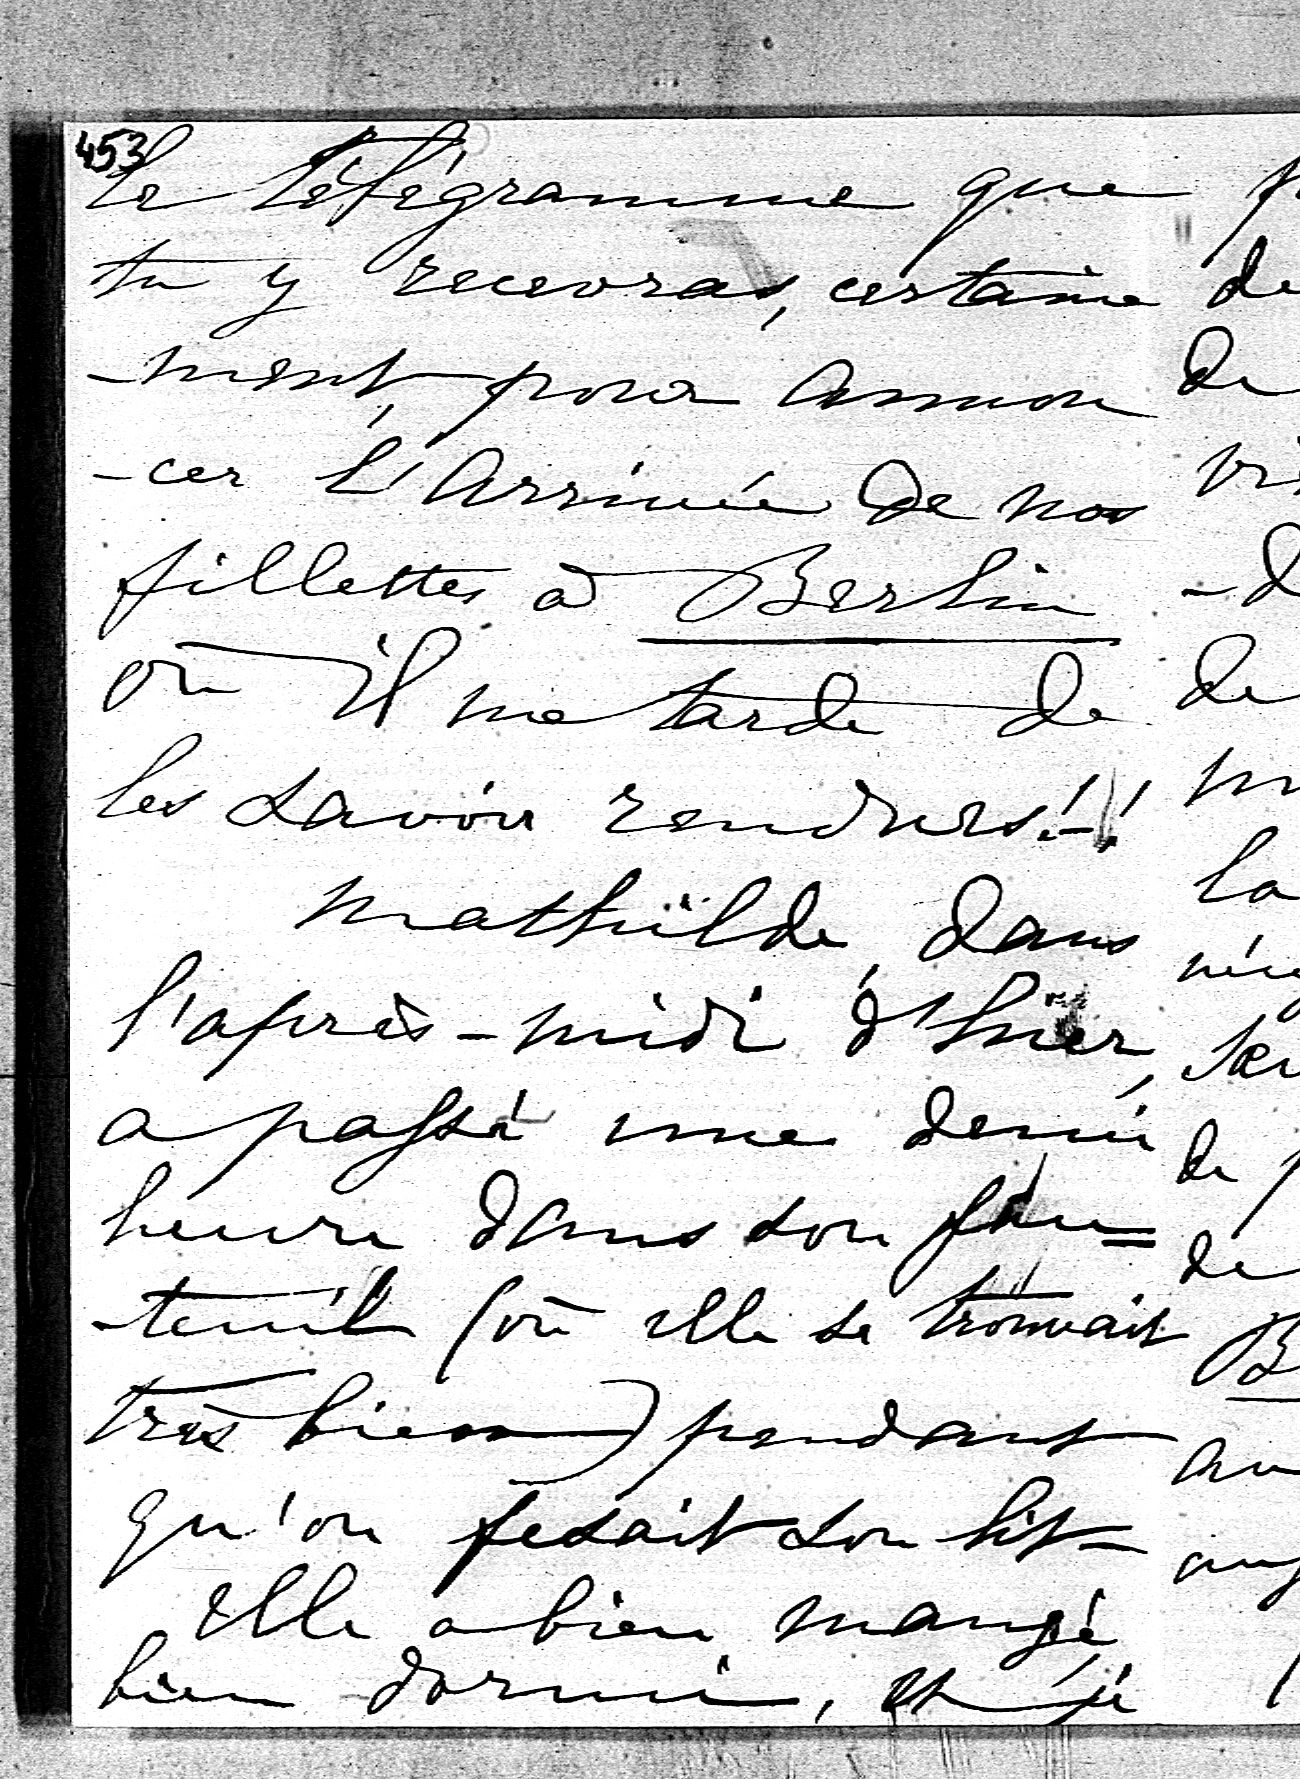 453
le télégramme que
tu y recevras, certaine
-ment, pour annon
-cer l'arrivée de nos
fillettes à Berlin
où il me tarde de
les savoir rendues!-!
Mathilde, dans
l'après-midi d'hier,
a passé une demie
heure dans son fau=
-teuil (où elle se trouvait
très bien) pendant
qu'on fesait son lit-
Elle a bien mangé,
bien dormi, et je
de
de
-d
de
la
de
de
B